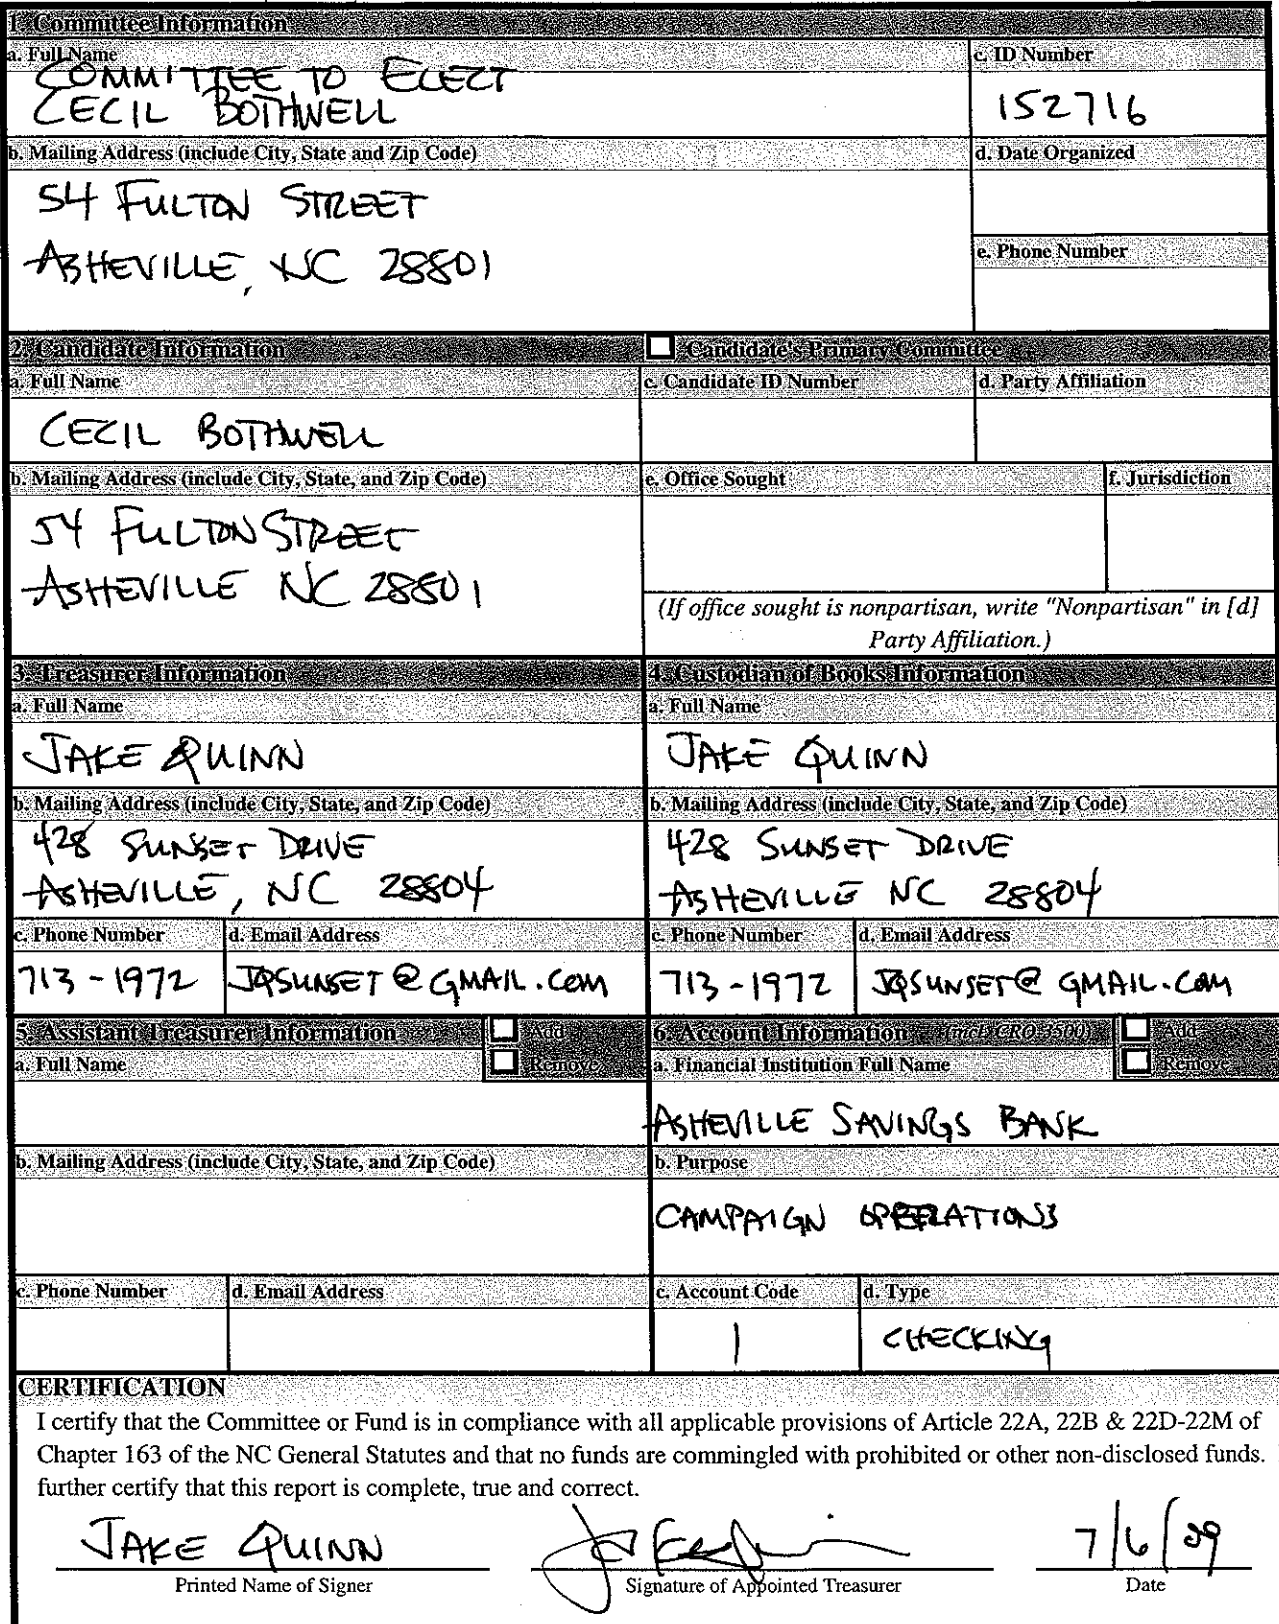 1. Committee Information
a. Full Name
COMMITTEE TO ELECT
CECIL BOTHWELL
c. ID Number
152716
b. Mailing Address (include City, State and Zip Code)
54 FULTON STREET
ASHEVILLE, NC 28801
d. Date Organized
e. Phone Number
2. Candidate Information
Candidate's Primary Committee
a. Full Name
CECIL BOTHWELL
c. Candidate ID Number
d. Party Affiliation
b. Mailing Address (include City, State, and Zip Code)
54 FULTON STREET
ASHEVILLE NC 28801
e. Office Sought
f. Jurisdiction
(If office sought is nonpartisan, write "Nonpartisan" in [d]
Party Affiliation.)
3. Treasurer Information
a. Full Name
JAKE QUINN
b. Mailing Address (include City, State, and Zip Code)
428 SUNSET DRIVE
ASHEVILLE, NC 28804
c. Phone Number
d. Email Address
713-1972
JQSUNSET@GMAIL.COM
4. Custodian of Books Information
a. Full Name
JAKE QUINN
b. Mailing Address (include City, State, and Zip Code)
428 SUNSET DRIVE
ASHEVILLE NC 28804
c. Phone Number
d. Email Address
713-1972
JQSUNSET@GMAIL.COM
5. Assistant Treasurer Information
Add
Remove
a. Full Name
b. Mailing Address (include City, State, and Zip Code)
c. Phone Number
d. Email Address
6. Account Information (incl. CRO-3500)
Add
Remove
a. Financial Institution Full Name
ASHEVILLE SAVINGS BANK
b. Purpose
CAMPAIGN OPERATIONS
c. Account Code
d. Type
1
CHECKING
CERTIFICATION
I certify that the Committee or Fund is in compliance with all applicable provisions of Article 22A, 22B & 22D-22M of
Chapter 163 of the NC General Statutes and that no funds are commingled with prohibited or other non-disclosed funds.
further certify that this report is complete, true and correct.
JAKE QUINN
7/6/09
Printed Name of Signer
Signature of Appointed Treasurer
Date